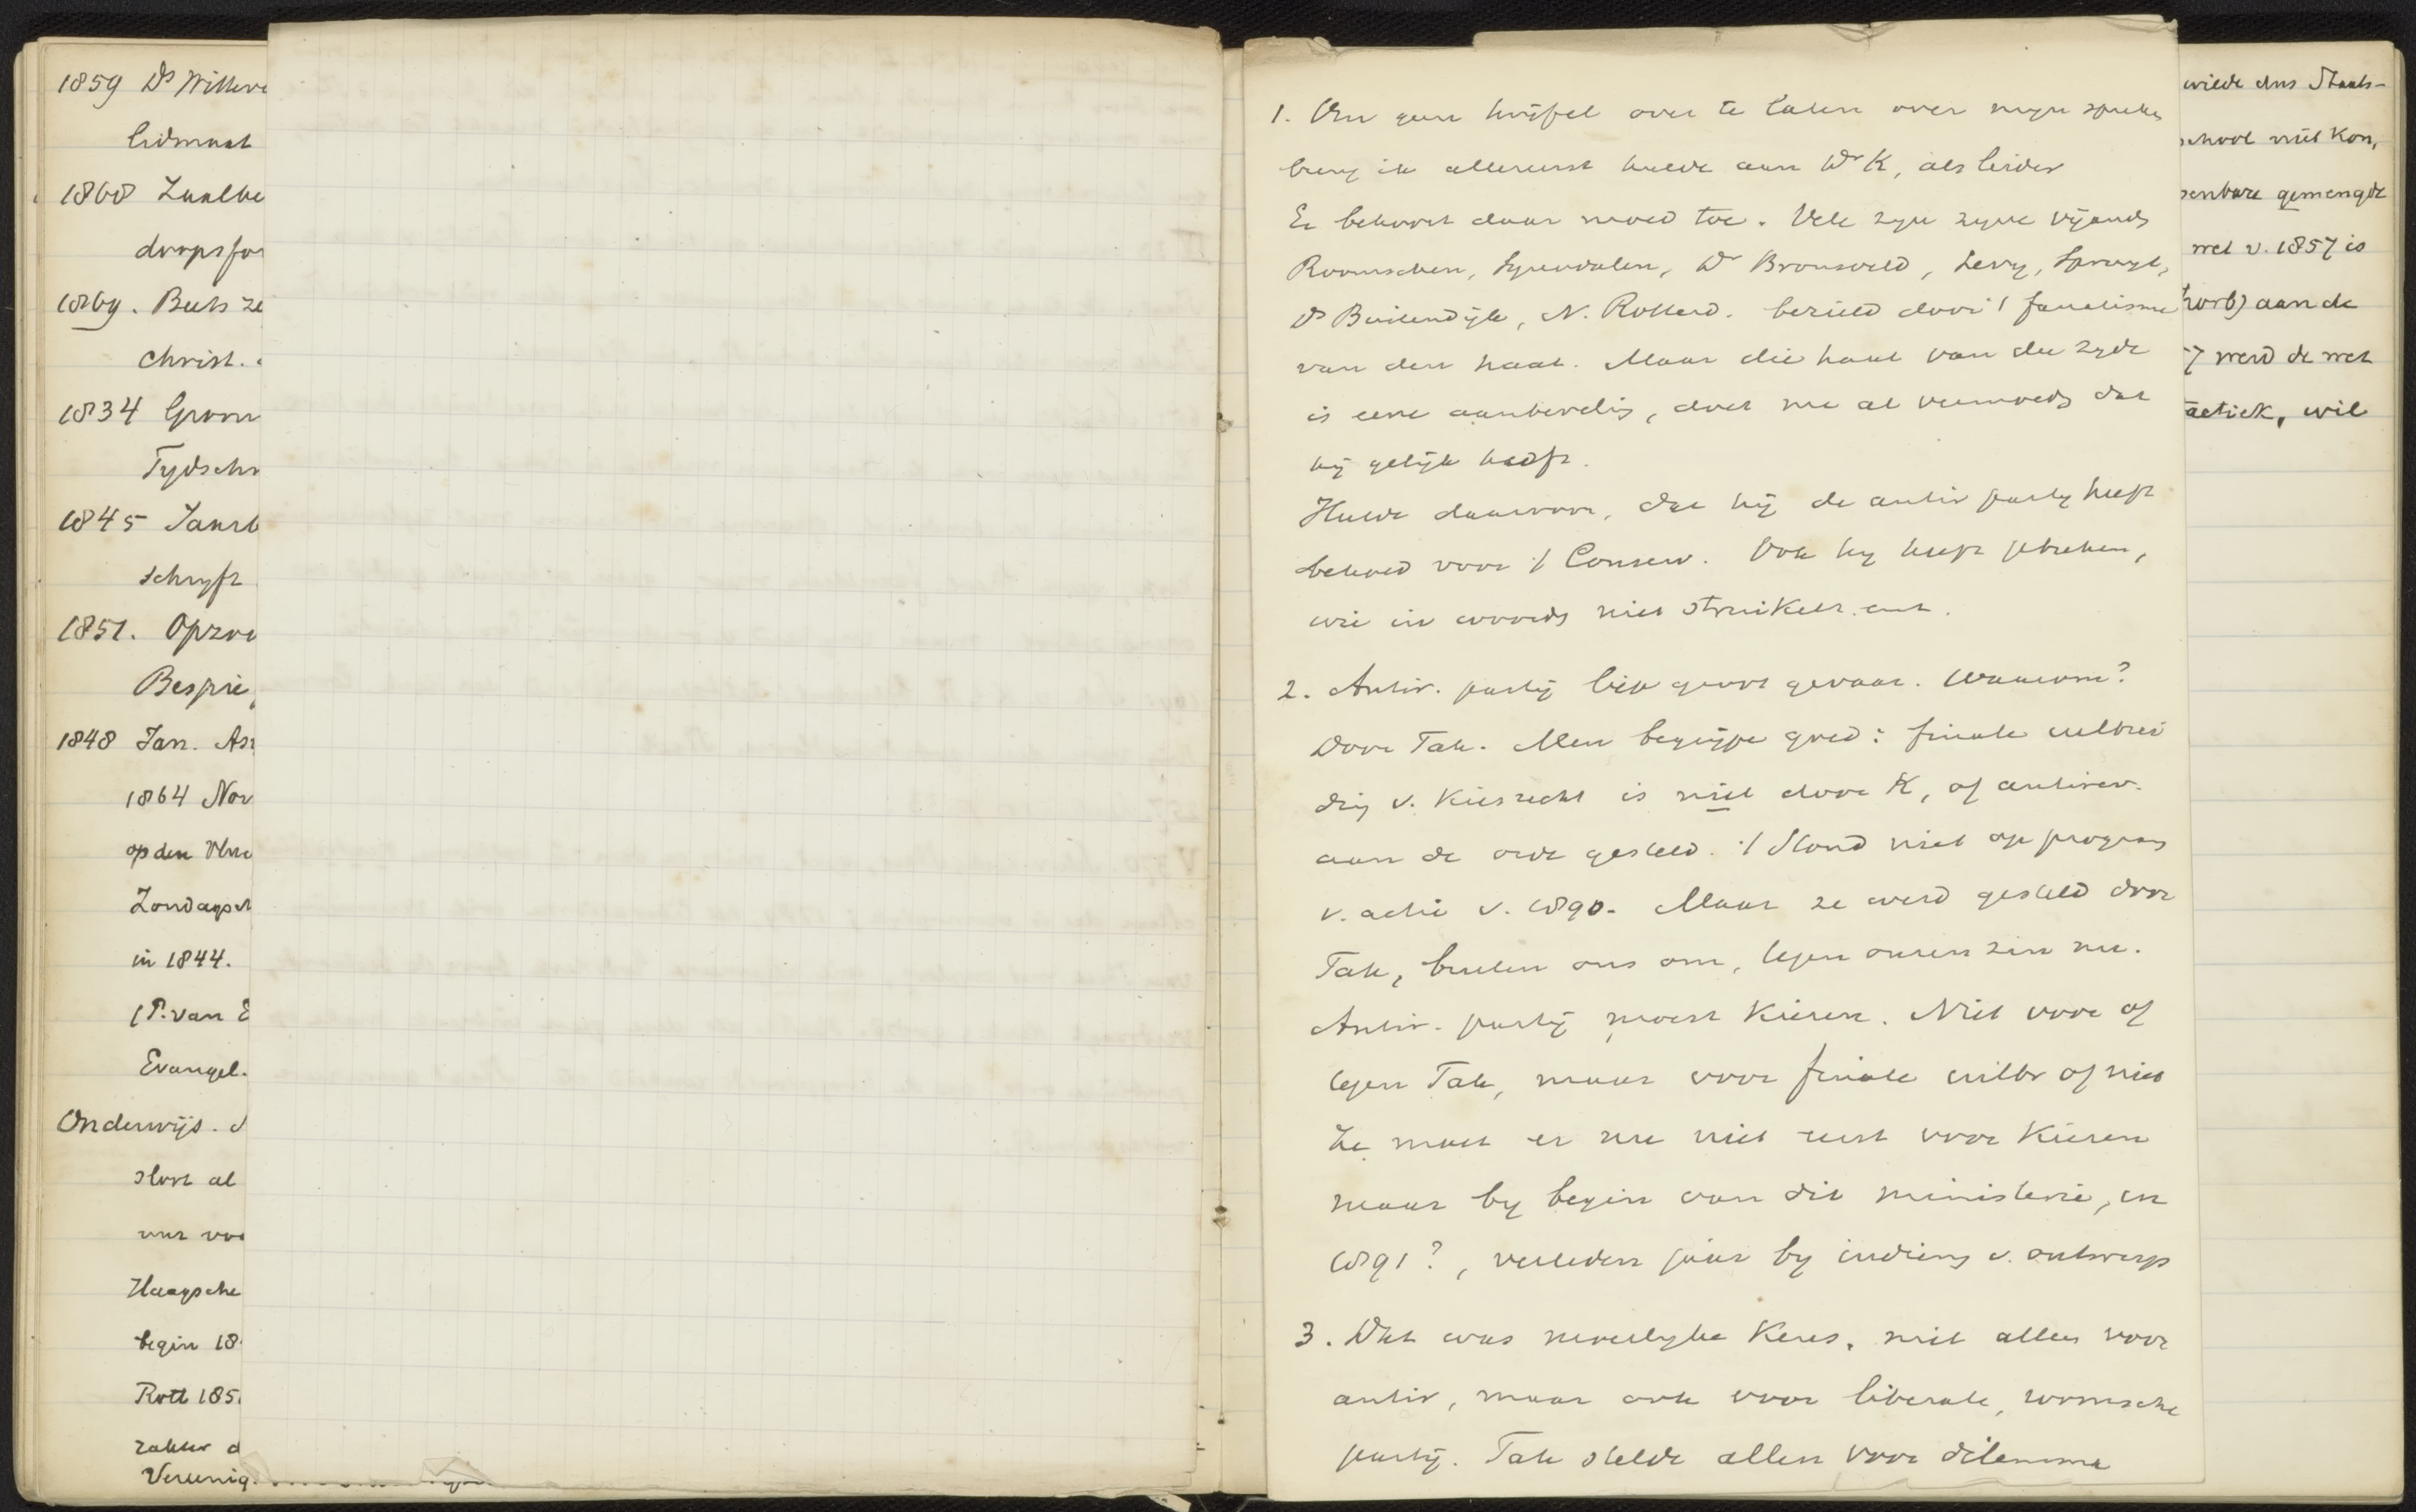 1859 Ds Witteve
lidmaat
1868 Zaalbe
dorpsfor
1869. Beets ze
Christ.
1834 Groen
Tydschr
1845 Jaarb
schryft
1851. Opzoe
Bespie
1848 Jan. As
1864 Nov
op den
Zondagsch
in 1844.
(P. van E
Evangel.
Onderwijs. S
Slort al
uur voo
Haagsche
begin 18
Rott 185
zakter d
Vereenig.
1. Om geen twijfel over te laten over myn spreken
breng ik allereerst hulde aan Dr K, als leider
Er behoort daar moed toe. Vele zyn zyne vijands
Roomschen, Lyndalen, Dr Bronsveld, Levy, Spruyt,
Ds Buitendijk, N. Rotterd. bezield door 't fanatisme
van den haat. Maar die haat van die zyde
is eene aanbevelig, doet me al vermoeds dat
hij gelijk heeft.
Hulde daarvoor, dat hij de antir party heeft
behoed voor 't Conserv. Ook hy heeft gebreken,
wie in woords niet struikelt. enz.
2. Antir. partij liep groot gevaar. Waarom?
Door Tak. Men begrijpe goed: finale uitbrei
dig v. Kiesrecht is niet door K, of antirev.
aan de orde gesteld. 't Stond niet op program
v. actie v. 1890. Maar ze werd gesteld door
Tak, buiten ons om, tegen onzen zin nu.
Antir. partij moest Kiezen. Niet voor of
tegen Tak, maar voor finale uitbr of niet
Ze moet er nu niet eerst voor Kiezen
maar by begin van dit ministerie, in
1891?, verleden jaar by indieng v. ontwerp
3. Dat was moeilyke Keus, niet alleen voor
antir, maar ook voor liberale, roomsche
partij. Tak stelde allen voor dilemma
wilde dus Staats-
school niet Kon,
penbare gemengde
wet v. 1857 is
aan de
7 werd de wet
actiek, wil